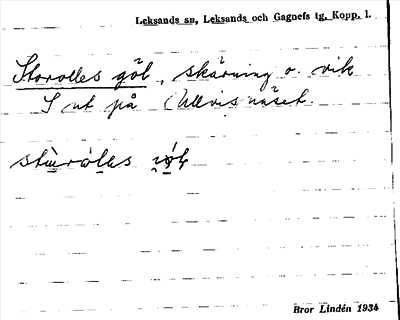 Leksands sn, Leksands och Gagnefs tg, Kopp. l.
Storolles göl, skärning o. vik
S ut på Ullvisnäset.
Bror Lindén 1934